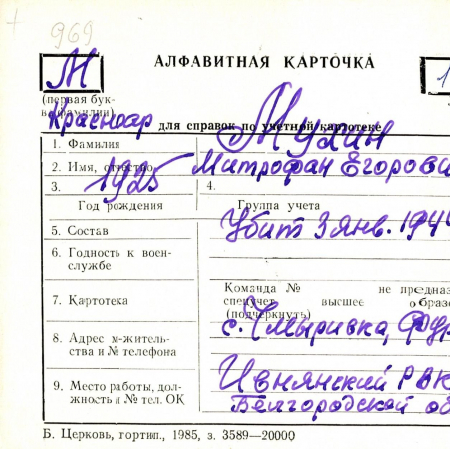 969
М
АЛФАВИТНАЯ КАРТОЧКА
1
(первая бук-
ва фамилии)
Красноар
для справок по учетной картотеке
1. Фамилия Мухин
2. Имя, отчество Митрофан Егорови
3. 1925 4.
Год рождения Группа учета
5. Состав Убит 3 янв. 1944
6. Годность к воен-
службе
Команда № не предназ
7. Картотека спецучет высшее образо
(подчеркнуть)
8. Адрес м-житель-
ства и № телефона с.
9. Место работы, дол-
жность и № тел. ОК Ивнянский РВК
Белгородской об
Б. Церковь, гортип., 1985, з. 3589—20000